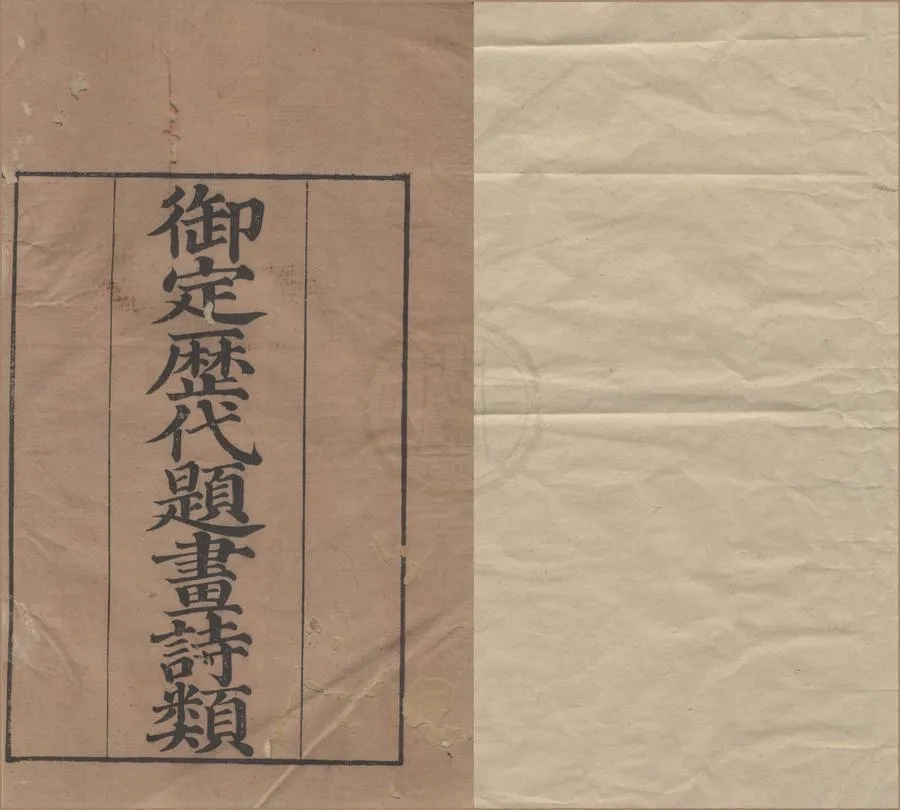 御定歴代題畫詩類